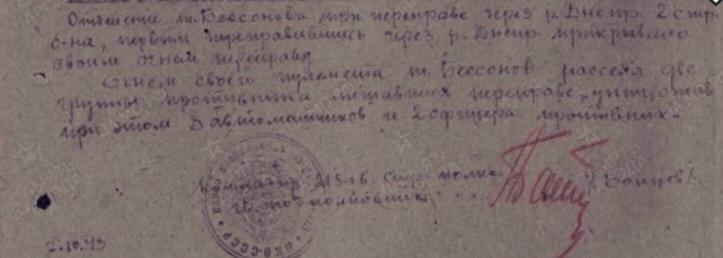 Отделение т.Бессонова при переправе через р.Днепр 2 стр.
б-на, первым переправившись через р.Днепр прикрывало
своим огнем переправу
Огнем своего пулемета т.Бессонов рассеял две
группы противника мешавших переправе, уничтожив
при этом 5 автоматчиков и 2 офицера противник
Командир гв. Стр. полка
гв. подполковник / Баицов/
НКО-СССР
.10.43